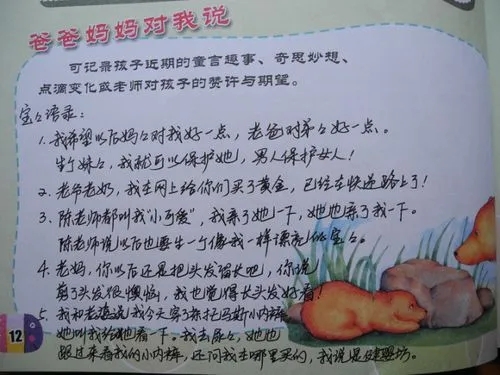 爸爸妈妈对我说
可记录孩子近期的童言趣事、奇思妙想、
点滴变化或老师对孩子的赞许与期望。
宝々语录:
1. 我希望以后妈々对我好一点，老爸对弟々好一点。
生了妹々，我就可以保护她，男人保护女人!
2. 老爷老奶，我在网上给你们买了黄金，已经在快递路上了!
3. 陈老师都叫我"小可爱"，我亲了她一下，她也亲了我一下。
陈老师说以后也要生一个像我一样漂亮的宝々。
4. 老妈，你以后还是把头发留长吧，你说
剪了头发很懊恼，我也觉得长头发好看!
5. 我和老婆说我今天穿了托马斯小内裤
她叫我给她看一下。我去尿々，她也
跟过来看我的小内裤，还问我在哪里买的，我说是健婴坊。
12